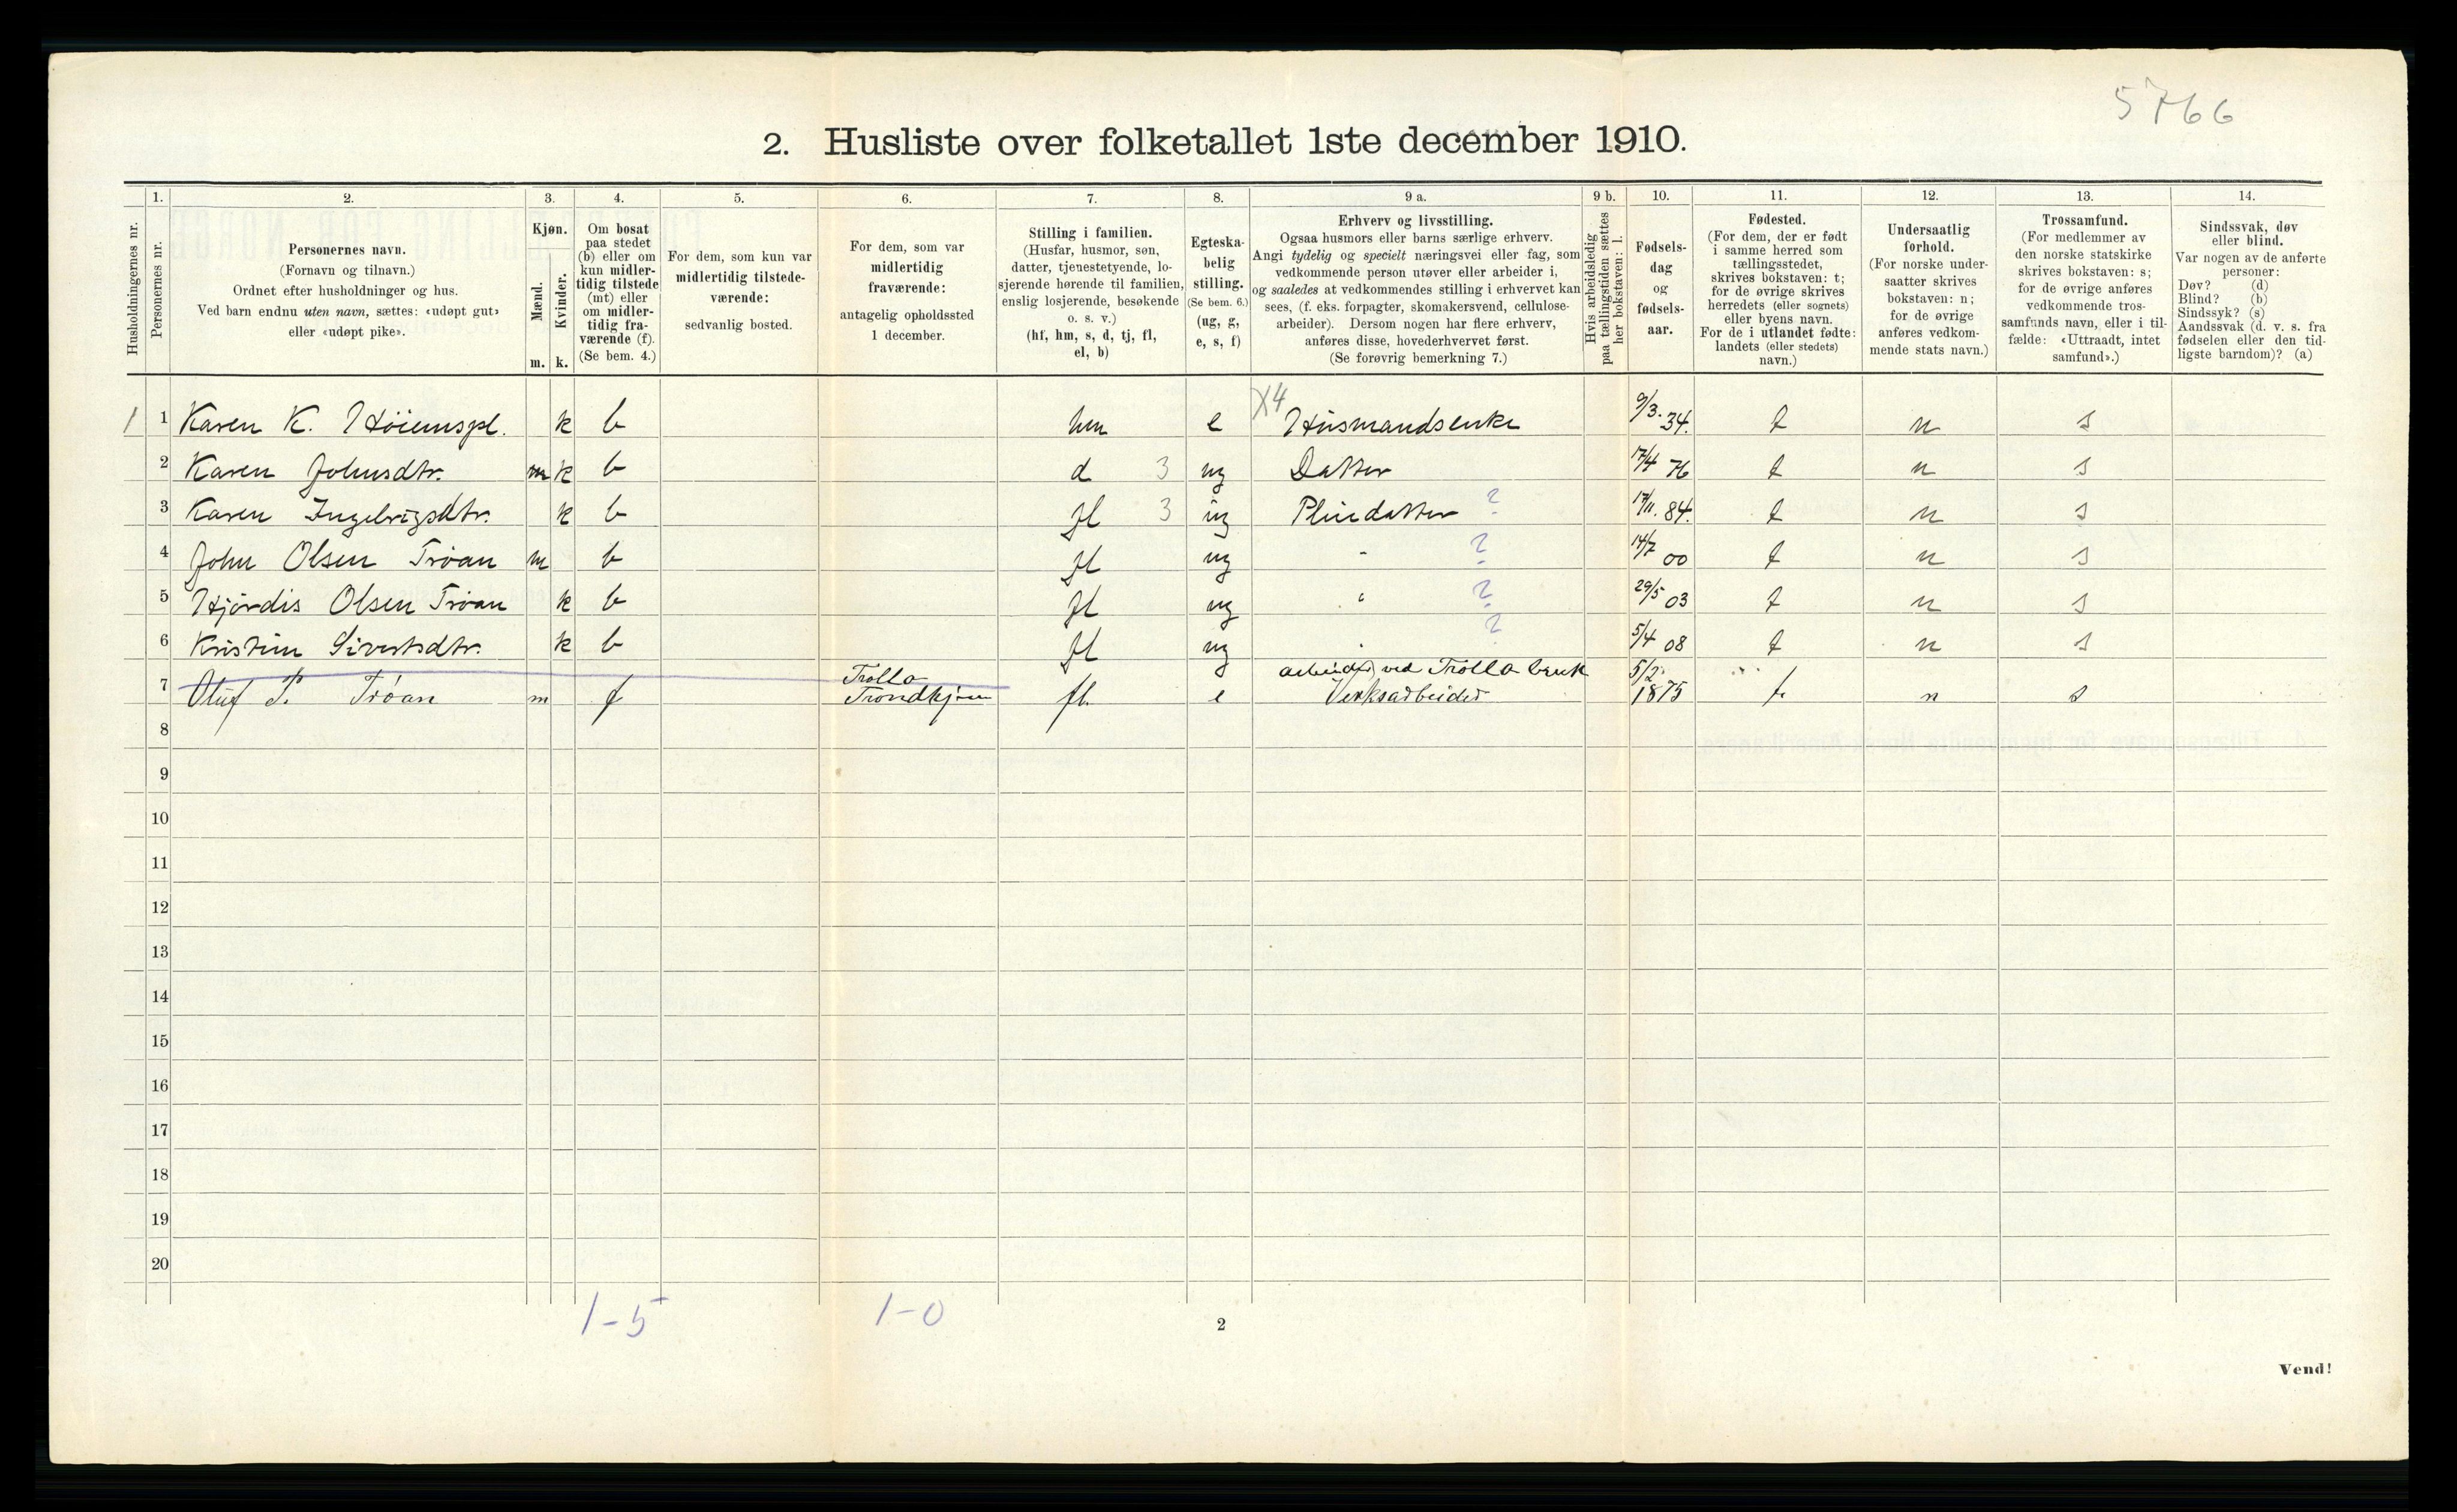 5766
2. Husliste over folketallet 1ste december 1910.
Husholdningernes nr.
1.
Personernes nr.
2.
Personernes navn.
(Fornavn og tilnavn.)
Ordnet efter husholdninger og hus.
Ved barn endnu uten navn, sættes: «udøpt gut»
eller «udøpt pike».
3.
Kjøn.
Mænd.
Kvinder.
m. k.
4.
Om bosat
paa stedet
(b) eller om
kun midler-
tidig tilstede
(mt) eller
om midler-
tidig fra-
værende (f).
(Se bem. 4.)
5.
For dem, som kun var
midlertidig tilstede-
værende:
sedvanlig bosted.
6.
For dem, som var
midlertidig
fraværende:
antagelig opholdssted
1 december.
7.
Stilling i familien.
(Husfar, husmor, søn,
datter, tjenestetyende, lo-
sjerende hørende til familien,
enslig losjerende, besøkende
o. s. v.)
(hf, hm, s, d, tj, fl,
el, b)
8.
Egteska-
belig
stilling.
(Se bem. 6.)
(ug, g,
e, s, f)
9 a.
Erhverv og livsstilling.
Ogsaa husmors eller barns særlige erhverv.
Angi tydelig og specielt næringsvei eller fag, som
vedkommende person utøver eller arbeider i,
og saaledes at vedkommendes stilling i erhvervet kan
sees, (f. eks. forpagter, skomakersvend, cellulose-
arbeider). Dersom nogen har flere erhverv,
anføres disse, hovederhvervet først.
(Se forøvrig bemerkning 7.)
9 b.
Hvis arbeidsledig
paa tællingstiden sættes
her bokstaven: l.
10.
Fødsels-
dag
og
fødsels-
aar.
11.
Fødested.
(For dem, der er født
i samme herred som
tællingsstedet,
skrives bokstaven: t;
for de øvrige skrives
herredets (eller sognets)
eller byens navn.
For de i utlandet fødte:
landets (eller stedets)
navn.)
12.
Undersaatlig
forhold.
(For norske under-
saatter skrives
bokstaven: n;
for de øvrige
anføres vedkom-
mende stats navn.)
13.
Trossamfund.
(For medlemmer av
den norske statskirke
skrives bokstaven: s;
for de øvrige anføres
vedkommende tros-
samfunds navn, eller i til-
fælde: «Uttraadt, intet
samfund».)
14.
Sindssvak, døv
eller blind.
Var nogen av de anførte
personer:
Døv? (d)
Blind? (b)
Sindssyk? (s)
Aandssvak (d. v. s. fra
fødselen eller den tid-
ligste barndom)? (a)
1 1 Karen K. Høiemspl. k b hm e X4 Husmandsenke 9/3.34. t n s
2 Karen Johnsdtr. m k b d 3 ug Datter 17/4 76 t n s
3 Karen Ingebrigsdtr. k b fl 3 ug Pleiedatter ? 17/11.84. t n s
4 John Olsen Trøan m b fl ug " ? 14/7 00 t n s
5 Hjørdis Olsen Trøan k b fl ug " ? 29/5 03 t n s
6 Kristine Sivertsdtr. k b fl ug " ? 5/4 08 t n s
Trolla arbeider ved Trolla bruk 5/2
7 Oluf P. Trøan m f Trondhjem fl. e Verksarbeider 1875 t n s
8
9
10
11
12
13
14
15
16
17
18
19
20
1-5 1-0
2
Vend!